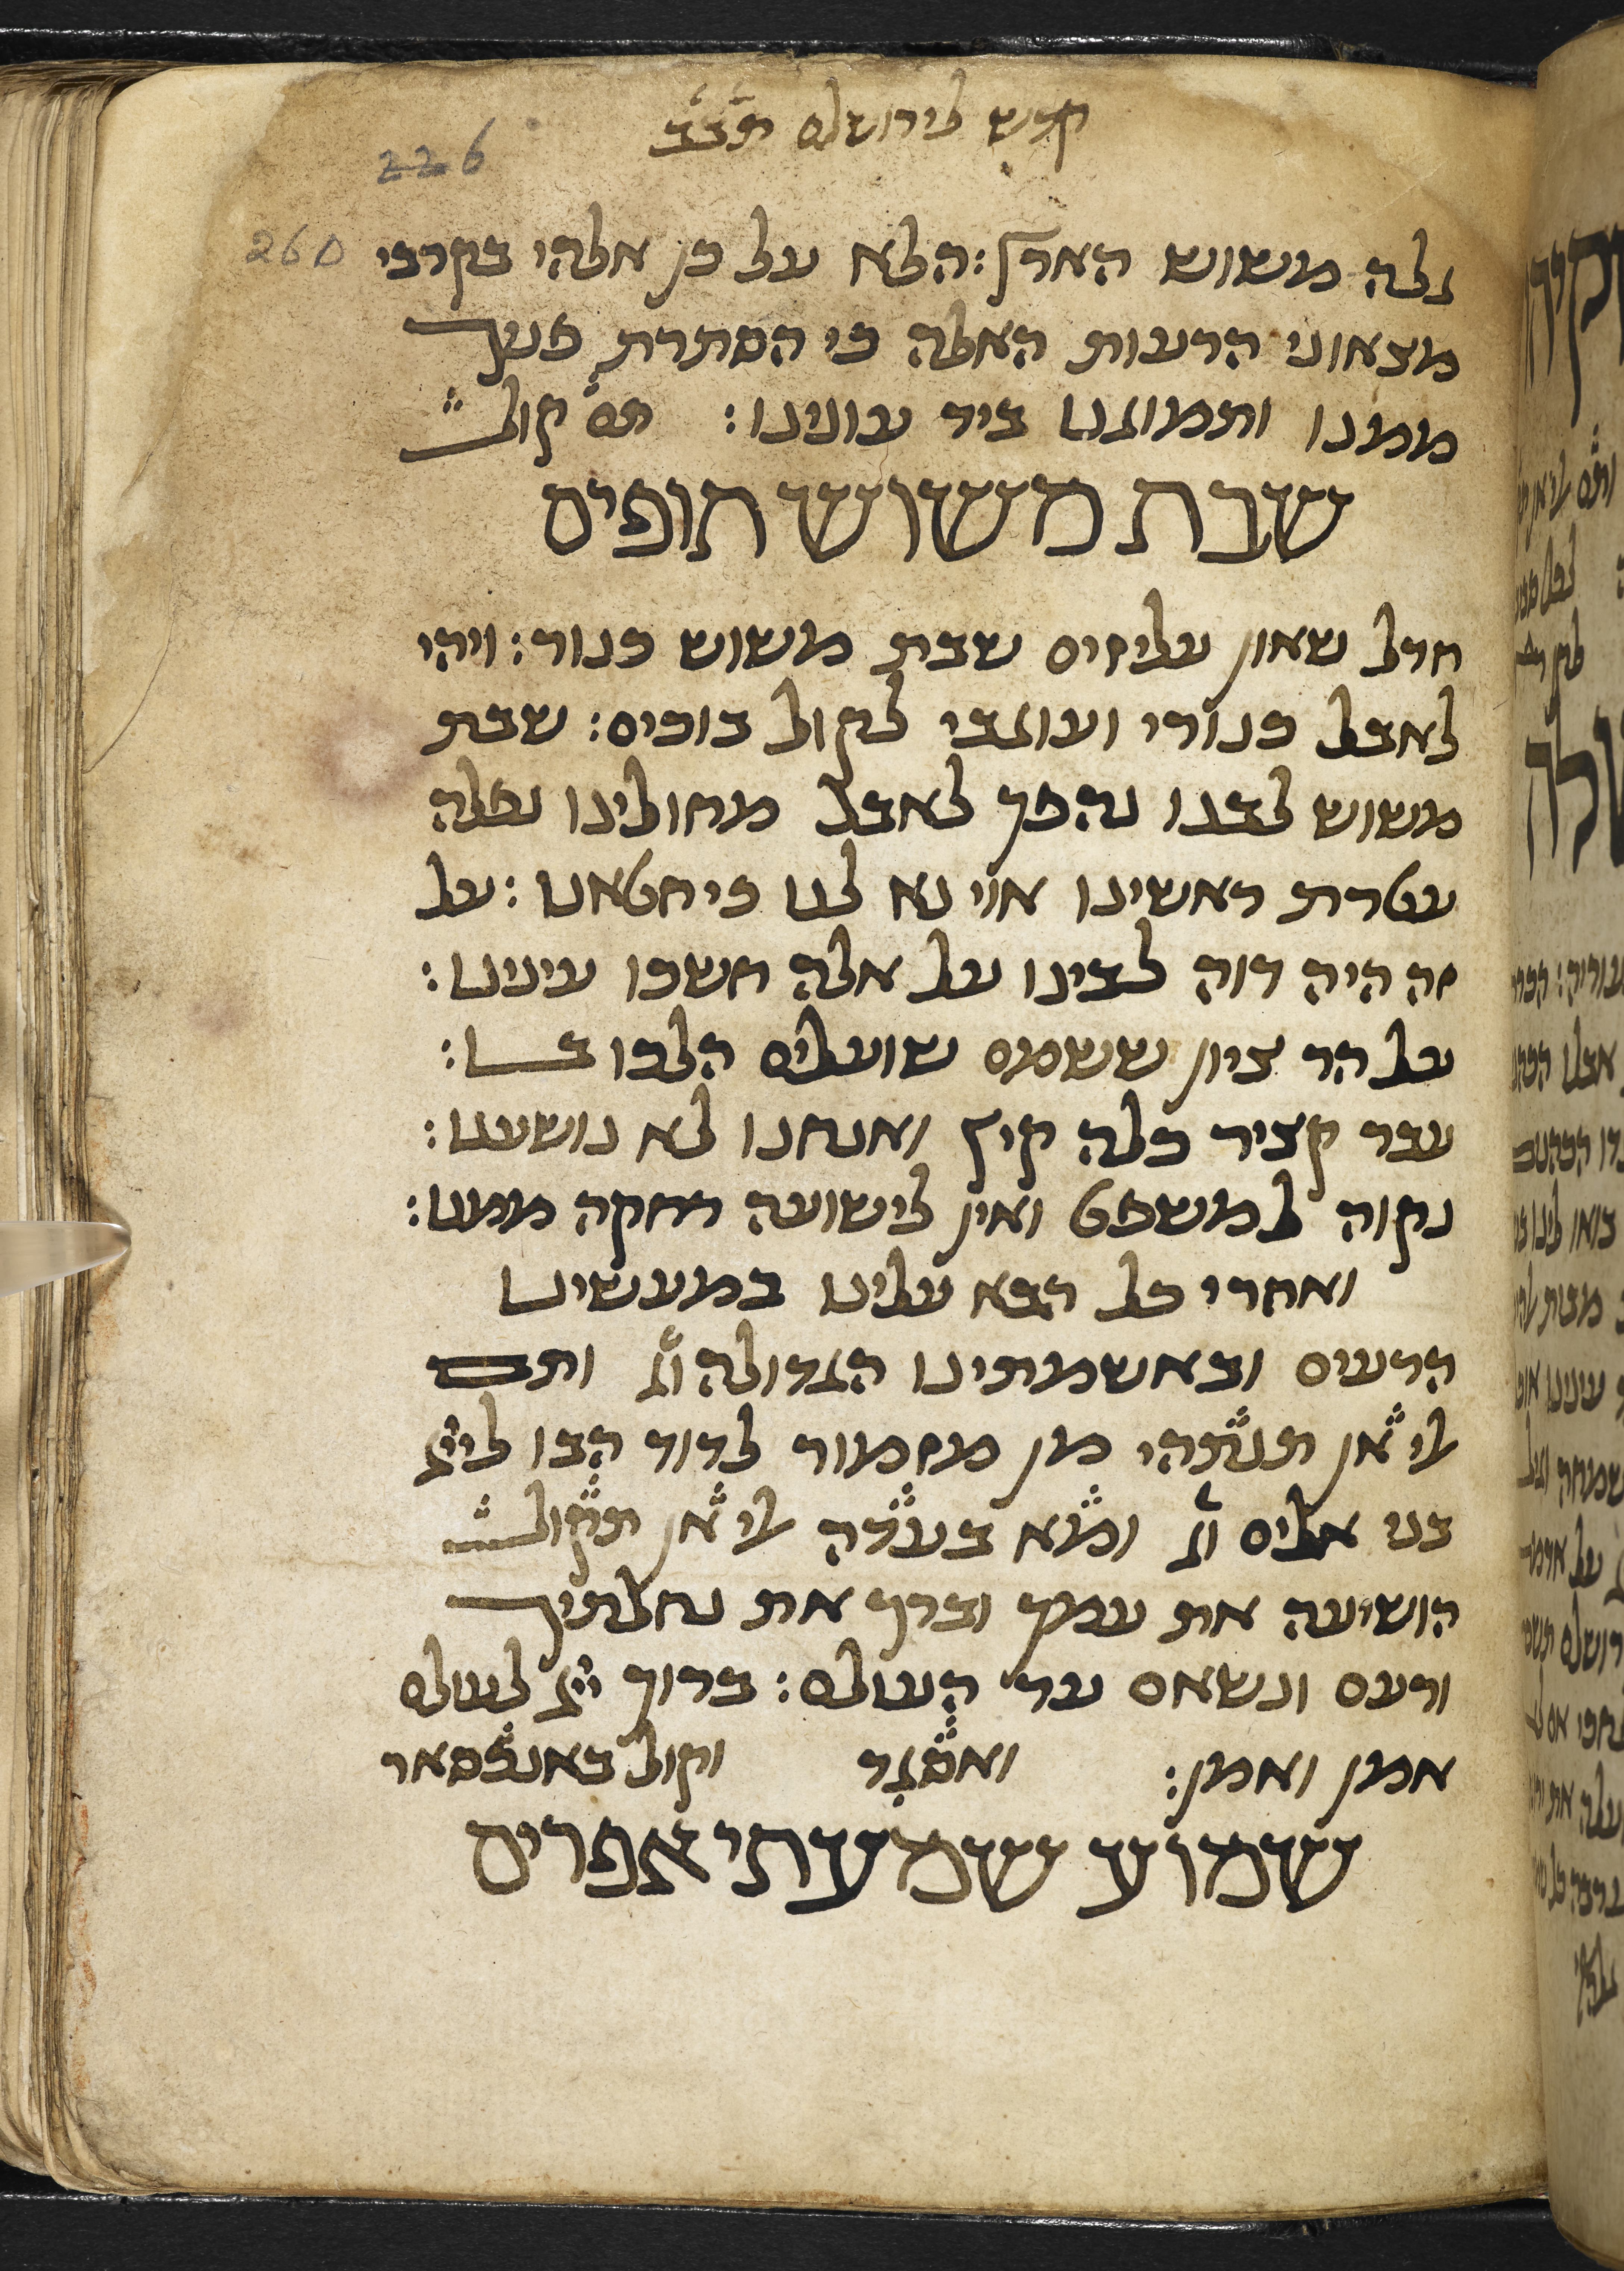 קדש לירושלם תבב
226
260
גלה משוש הארץ: הלא על כן אלהי בקרבי
מצאוני הרעות האלה כי הסתרת פניך
ממנו ותמוגנו ביד עונינו: תם קול
שבת משוש תופים
חדל שאון עליזים שבת משוש כנור: ויהי
לאבל כנורי ועוגבי לקול בוכים: שבת
משוש לבנו נהפך לאבל מחולינו נפלה
עטרת ראשינו אוי נא לנו כי חטאנו: על
זה היה דוה לבינו על אלה חשכו עינינו:
על הר ציון ששמם שועלים הלכו בו:
עבר קציר כלה קיץ ואנחנו לא נושענו:
נקוה למשפט ואין לישועה רחקה ממנו:
ואחרי כל הבא עלינו במעשינו
הרעים ובאשמתינו הגדולה וג ותם
לי אן תנתהי מן מזמור לדוד הבו לייי
בני אלים וג ומא בעדה לי אן תקול
הושיעה את עמך וברך את נחלתיך
ורעם ונשאם עד העולם: ברוך ייי לעולם
אמן ואמן: ואסגד וקול באנכסאר
שמוע שמעתי אפרים